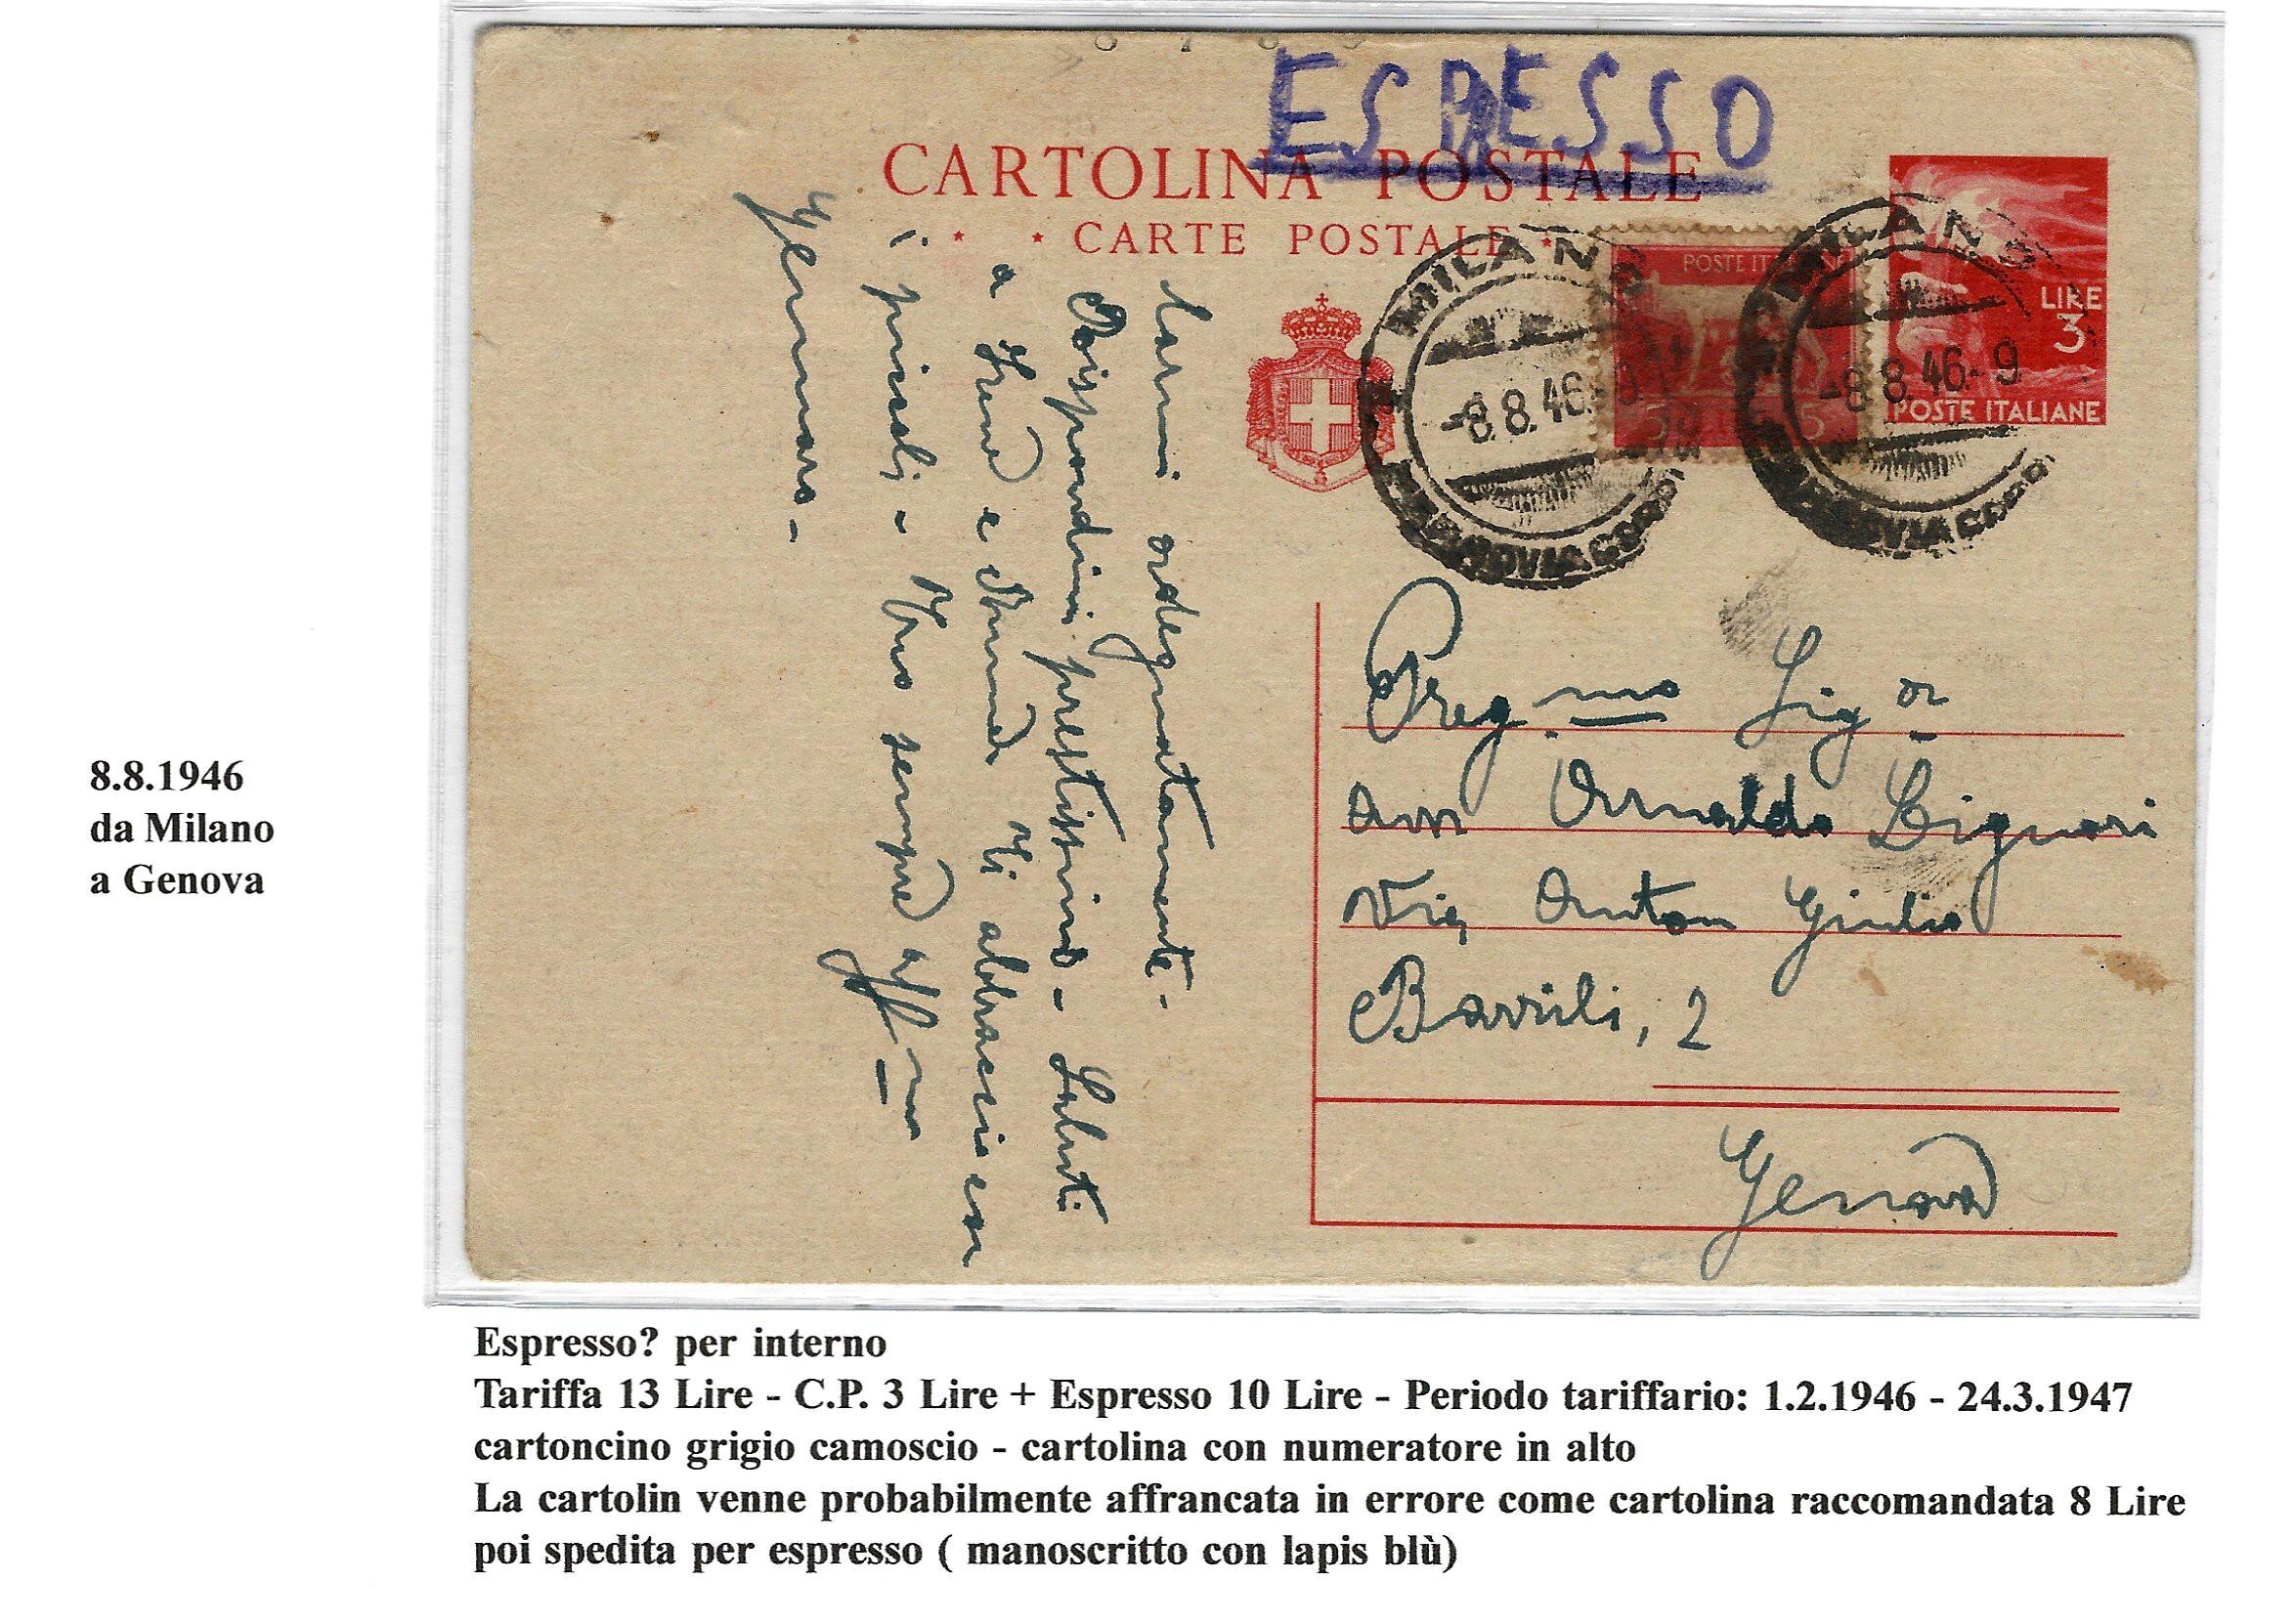 ESPRESSO
CARTOLINA POSTALE
CARTE POSTALE
POSTE ITALIANE
5 5
LIRE
3
POSTE ITALIANE
MILANO
-8.8.46-9
FERROVIA CORR
MILANO
-8.8.46-9
FERROVIA CORR
larmi adeguatamente-
Rispondimi prestissimo- Saluti
a Irene e Anna Ti abbraccia con
i piccoli- Tuo sempre aff mo
Gennaro-
Preg.mo Sig or
Avv Arnaldo Bignari
Via Anton Giulio
Barrili, 2
Genova
8.8.1946
da Milano
a Genova
Espresso? per interno
Tariffa 13 Lire - C.P. 3 Lire + Espresso 10 Lire - Periodo tariffario: 1.2.1946 - 24.3.1947
cartoncino grigio camoscio - cartolina con numeratore in alto
La cartolin venne probabilmente affrancata in errore come cartolina raccomandata 8 Lire
poi spedita per espresso ( manoscritto con lapis blù)